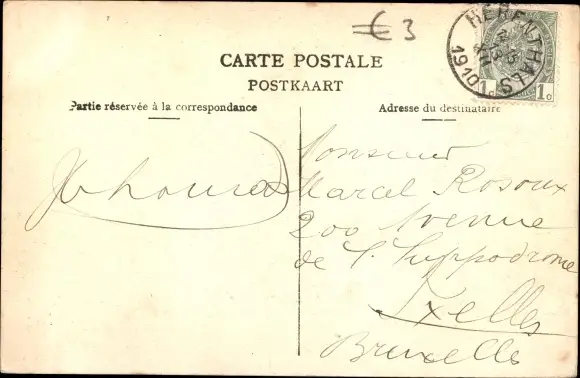 €3
HERENTHALS
1910
1c 1c
CARTE POSTALE
POSTKAART
Partie réservée à la correspondance
Adresse du destinataire
Monsieur
Marcel Rosoux
200 Avenue
de l'hyppodrome
Ixelles
Bruxelles